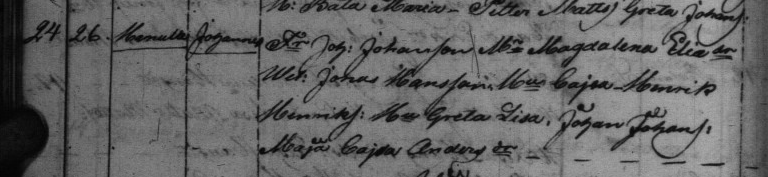 W: Kata Maria - Petter Matts) Greta Johans:
24 26. Johannes Fr Joh: Johansson Mr Magdalena Elia dr
Wit: Jonas Hansson, Hus Cajsa - Henrik
Henriks: Hus Greta Lisa. Johan Johans:
Maja Cajsa Anders dr